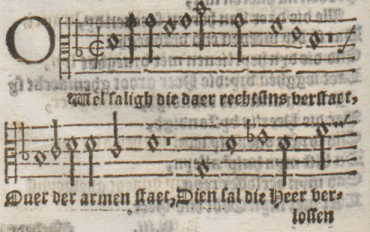 O
Wel ſaligh die daer rechtſins verſtaet,
Ouer der armen ſtaet, Dien ſal die Heer ver-
loſſen